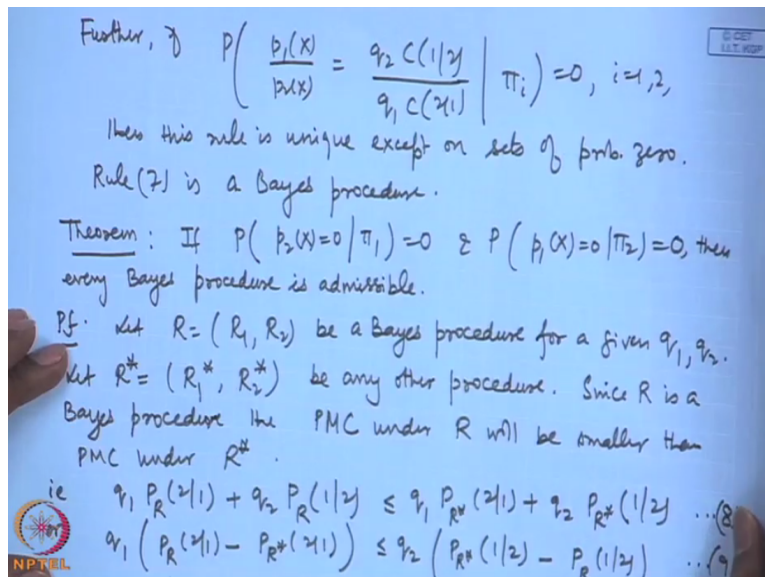 Further, if P( p₁(X)/p₂(X) = q₂ C(1/2)/q₁ C(2/1) | π_i ) = 0, i=1,2,
then this rule is unique except on sets of prob. zero.
Rule (7) is a Bayes procedure.
Theorem: If P( p₂(X)=0 | π₁ ) = 0 & P( p₁(X)=0 | π₂ ) = 0, then
every Bayes procedure is admissible.
Pf. Let R = (R₁, R₂) be a Bayes procedure for a given q₁, q₂.
Let R* = (R₁*, R₂*) be any other procedure. Since R is a
Bayes procedure the PMC under R will be smaller than
PMC under R*.
ie q₁ P_R(2/1) + q₂ P_R(1/2) ≤ q₁ P_R*(2/1) + q₂ P_R*(1/2) ...(8
or q₁ ( P_R(2/1) - P_R*(2/1) ) ≤ q₂ ( P_R*(1/2) - P_R(1/2) ) ...(9
© CET
I.I.T. KGP
NPTEL